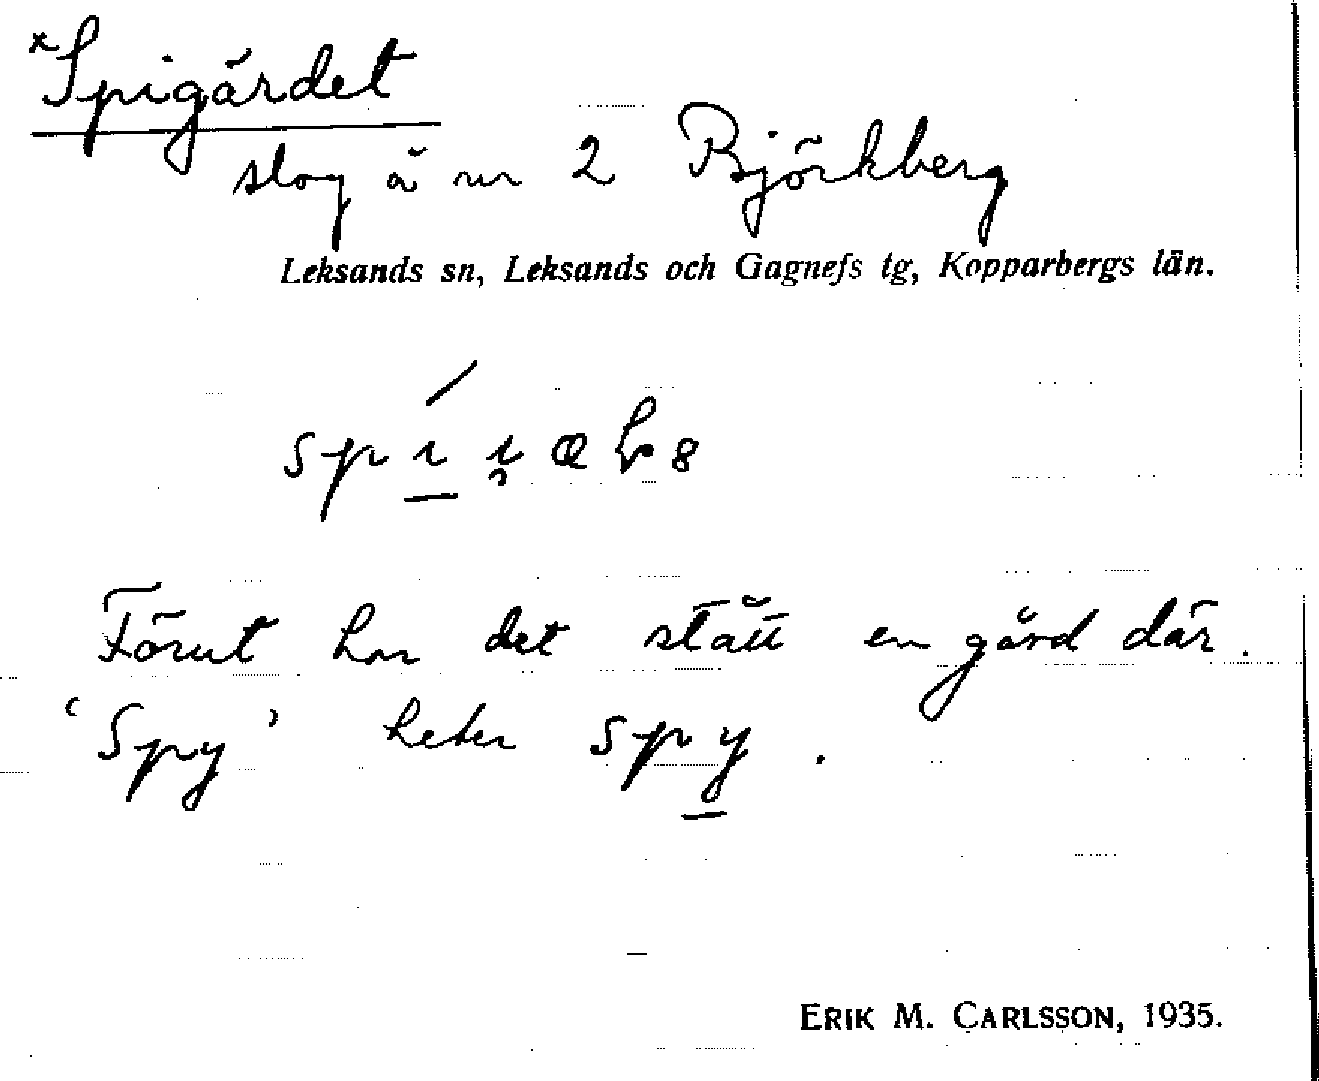 *Spigärdet
slog å nr 2 Björkberg
Leksands sn, Leksands och Gagnefs tg, Kopparbergs län.
Förut har det stått en gård där.
'Spy' heter spy.
ERIK M. CARLSSON, 1935.